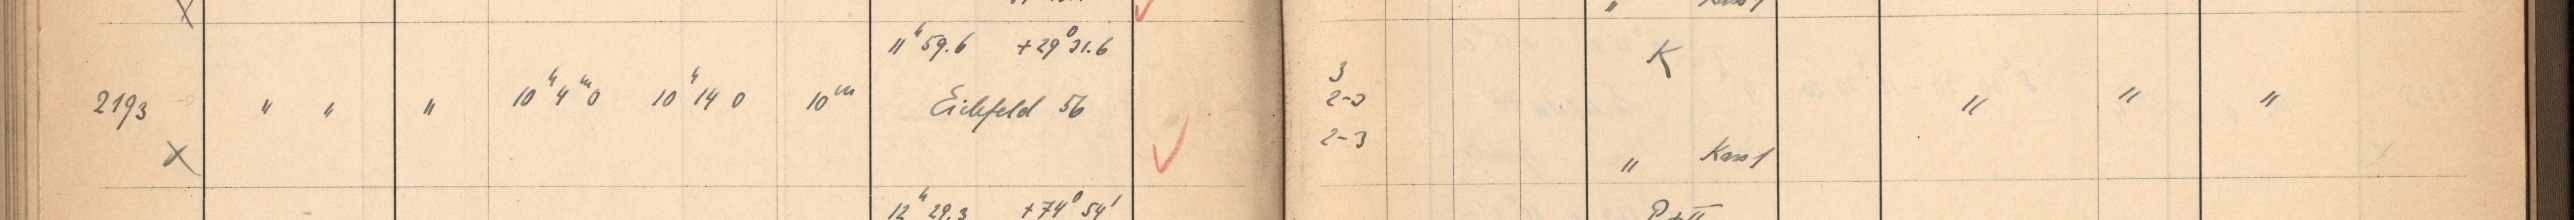 " Kass 1
11ʰ59.6 +29°31.6
K
3
2193 " " " 10ʰ4ᵐ0 10ʰ14 0 10ᵐ Eichfeld 56 2-3 " " "
2-3
" Kass 1
12ʰ29.3 +74°54'